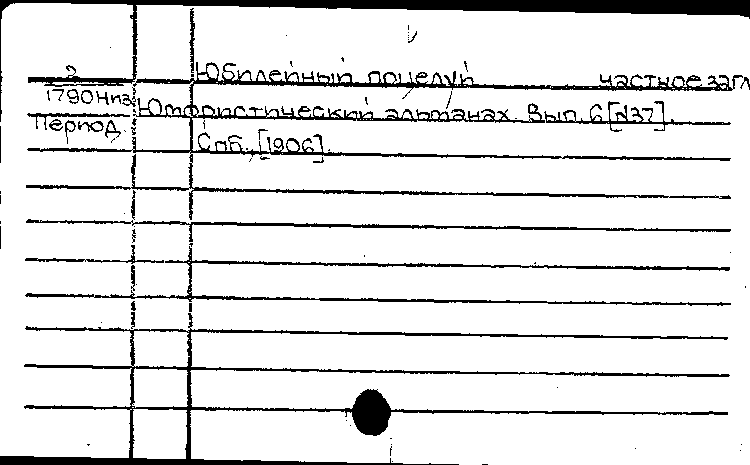 Юбилейный поцелуй частное загл
2
1790 Ниа Юмористический альманах. Вып. 6 [№37].
Период. Спб., [1906].